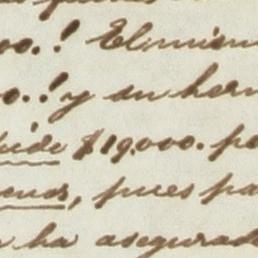 oo.! El mism
o.! y su herm
pide $19.000. pe
enos, pues pa
ha asegurad